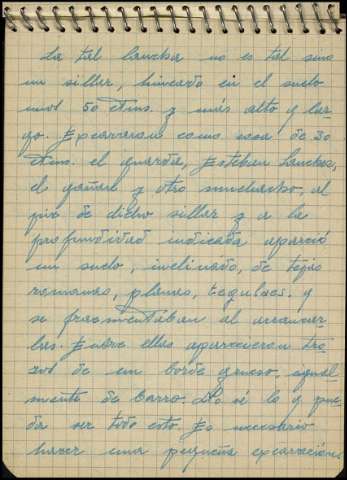 La tal lancha no es tal sino
un sillar, hincado en el suelo
unos 50 ctms. y más alto y lar-
go. Excavaron como cosa de 30
ctms. el guarda, Esteban Sanchez,
el gañan y otro muchacho, al
pie de dicho sillar y a la
profundidad indicada apareció
un suelo, inclinado, de tejas
romanas, planas, tegulaes. y
se fragmentaban al arrancar-
las. Entre ellas aparecieron tro-
zos de un borde grueso, igual-
mente de barro. No sé lo q pue-
da ser todo esto. Es necesario
hacer una pequeña excavación